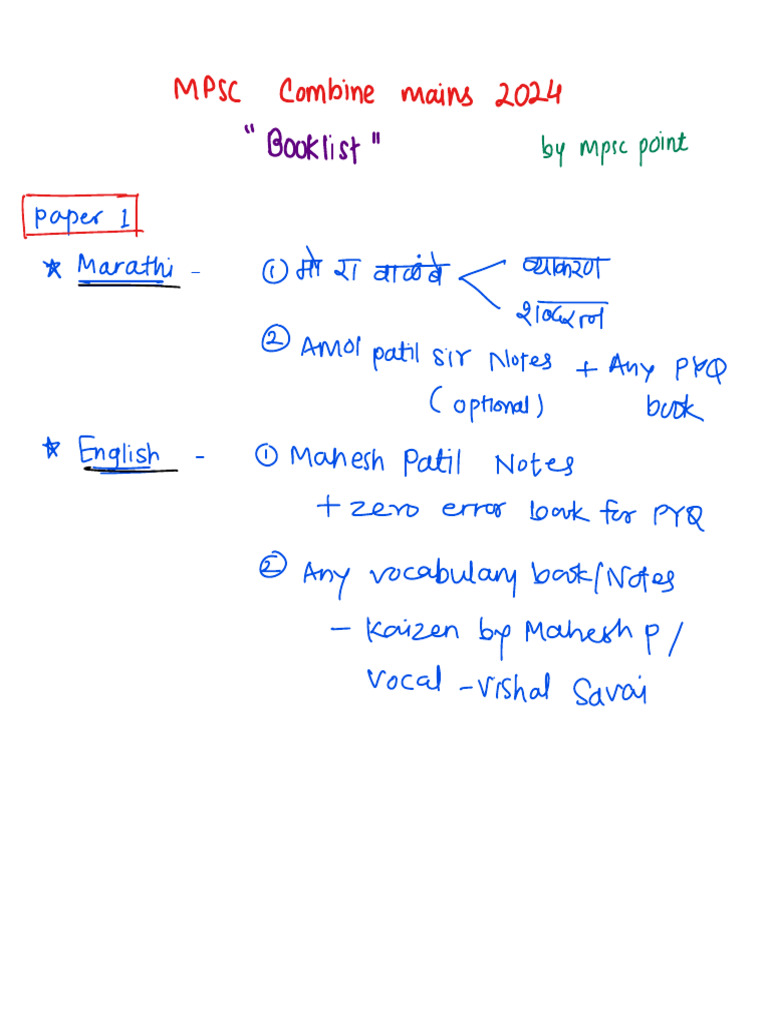 MPSC Combine mains 2024
"Booklist"
by mpsc point
paper 1
* Marathi - ① मो रा वाळंबे < व्याकरण
शब्दरत्न
② Amol patil sir Notes + Any PYQ
(optional) book
* English - ① Mahesh Patil Notes
+ zero error book for PYQ
② Any vocabulary book/Notes
- Kaizen by Mahesh P/
vocal - vishal Savai